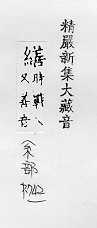 精嚴新集大藏音
繕時戰
又音
(糸部
P.742)